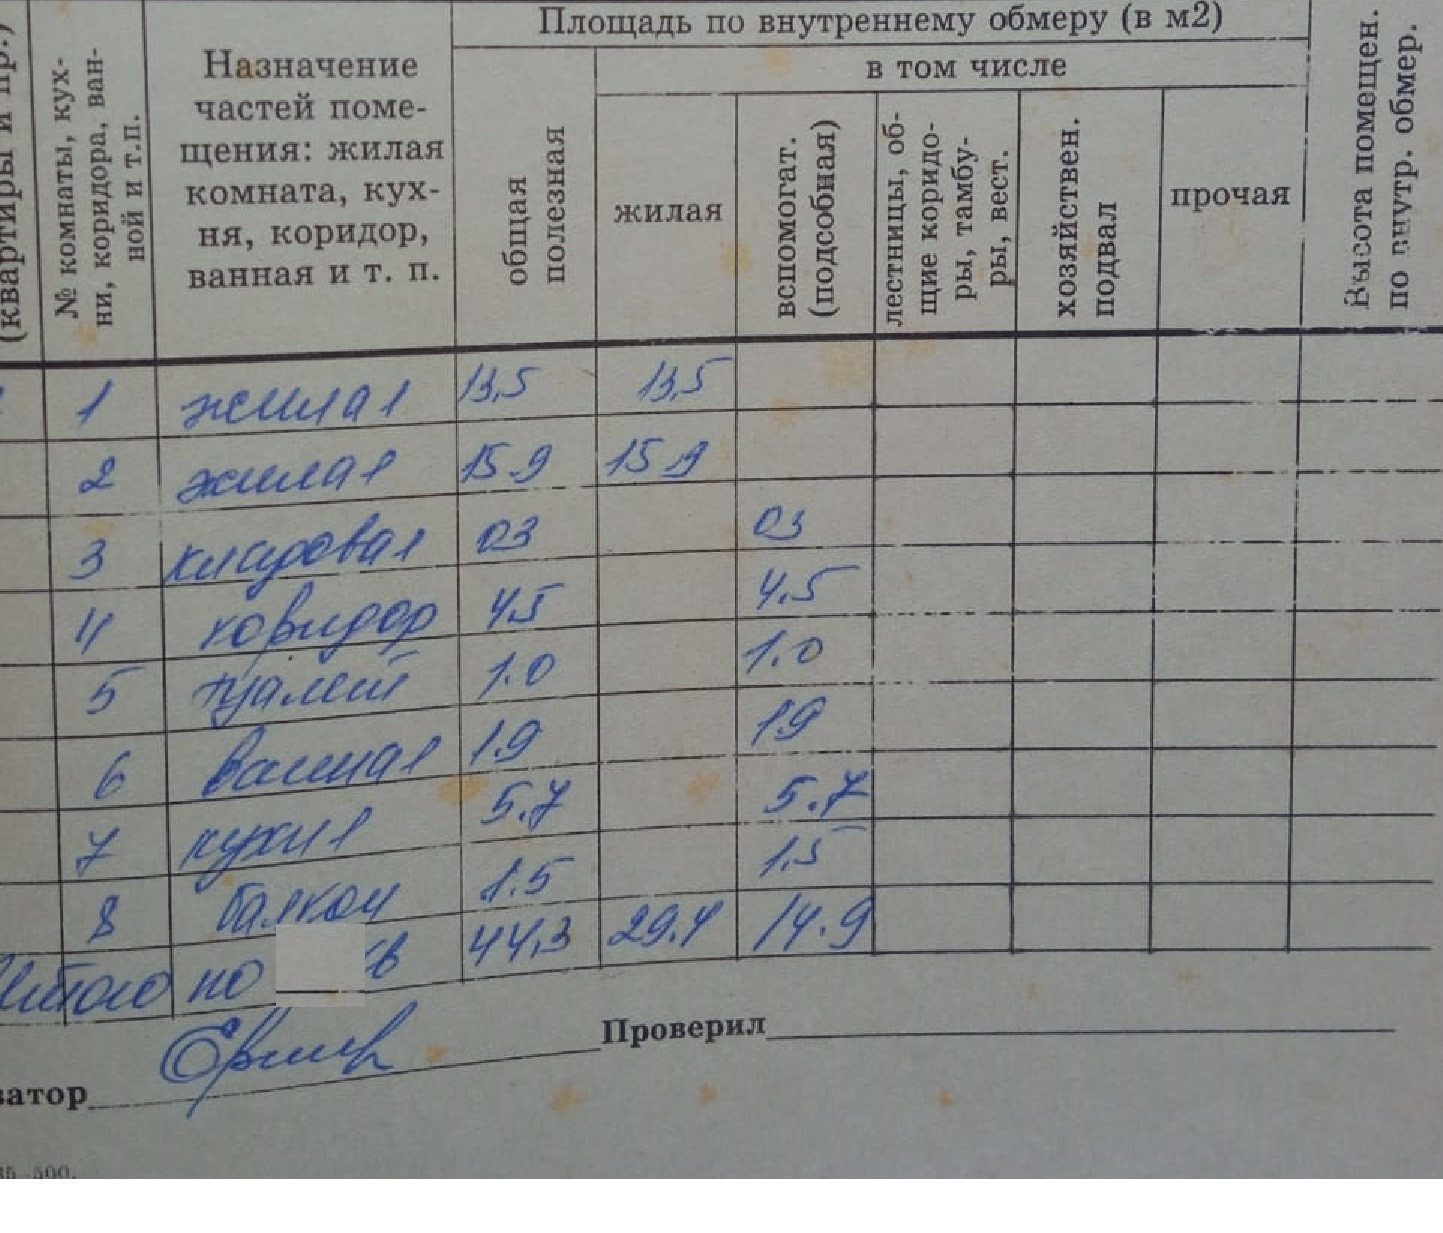 Площадь по внутреннему обмеру (в м2)
в том числе
(квартиры и пр.)
№ комнаты, кух-
ни, коридора, ван-
ной и т.п.
Назначение
частей поме-
щения: жилая
комната, кух-
ня, коридор,
ванная и т. п.
общая
полезная
жилая
вспомогат.
(подсобная)
лестницы, об-
щие коридо-
ры, тамбу-
ры, вест.
хозяйствен.
подвал
прочая
Высота помещен.
по внутр. обмер.
1 жилая 13,5 13,5
2 жилая 15.9 15.9
3 кладовая 03 03
4 коридор 4.5 4.5
5 туалет 1.0 1.0
6 ванная 1.9 19
7 кухня 5.7 5.7
8 балкон 1.5 1.5
Итого по кв 44,3 29.4 14.9
Проверил
затор
35-500.